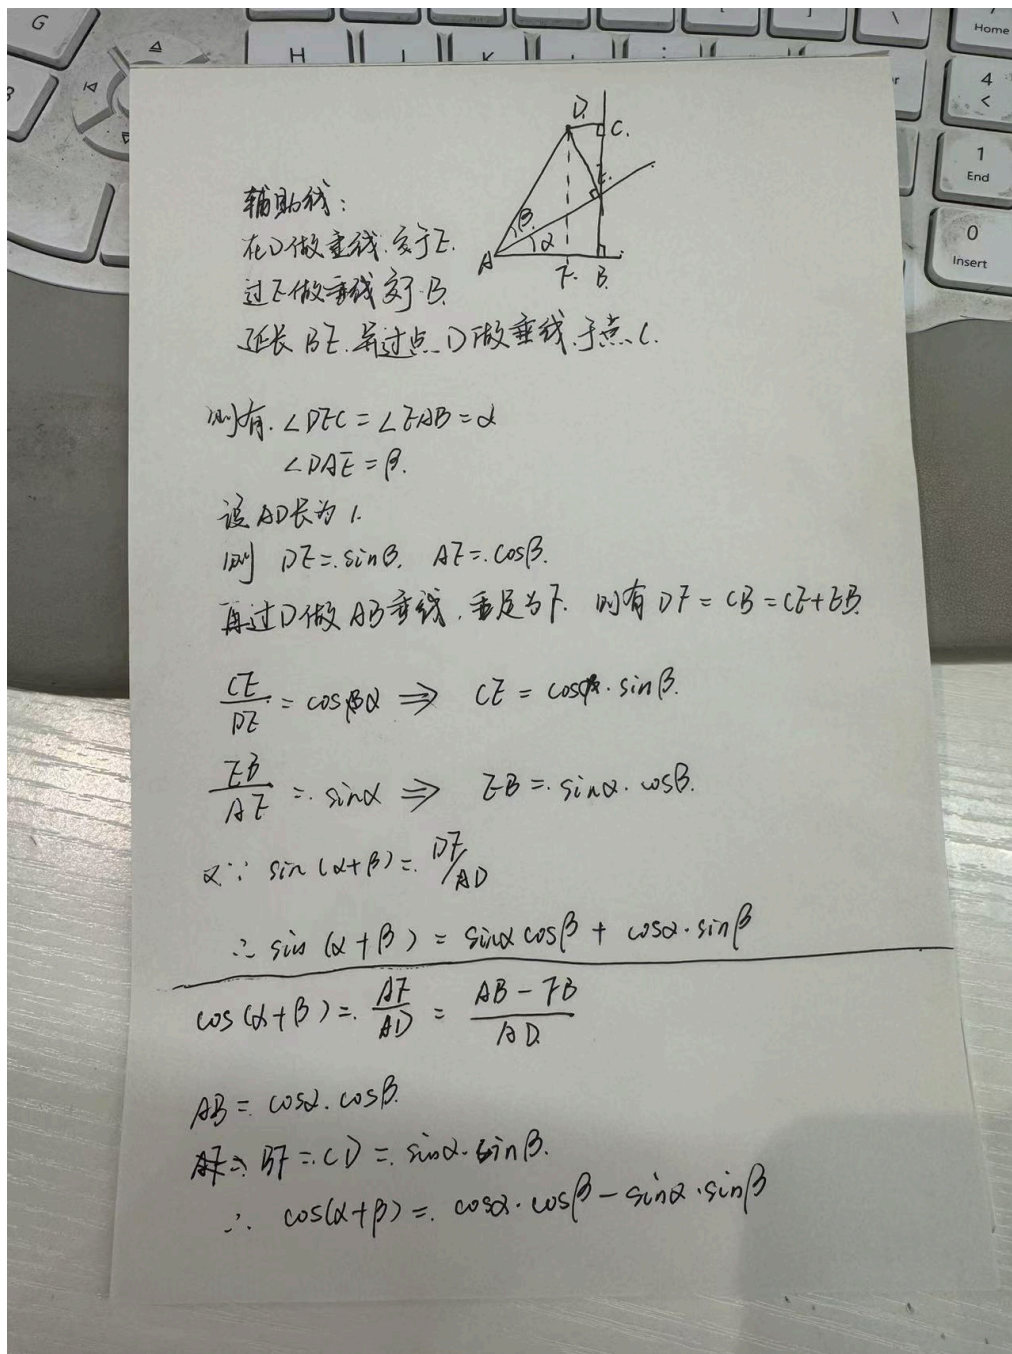 G
H
J
K
L
;
\
Home
4
<
1
End
0
Insert
D
C.
E.
β
α
A
F
B
辅助线:
在D做垂线,交于E.
过E做垂线交于B.
延长BE.并过点D做垂线,于点C.
则有. ∠DEC = ∠EAB = α
∠DAE = β.
设AD长为1.
则 DE = sinβ. AE = cosβ.
再过D做AB垂线,垂足为F. 则有DF = CB = CE+EB.
CE/DE = cosα ⇒ CE = cosα·sinβ.
EB/AE = sinα ⇒ EB = sinα·cosβ.
又∵ sin(α+β) = DF/AD
∴ sin(α+β) = sinαcosβ + cosα·sinβ
cos(α+β) = AF/AD = AB-FB/AD
AB = cosα·cosβ.
BF = CD = sinα·sinβ.
∴ cos(α+β) = cosα·cosβ - sinα·sinβ